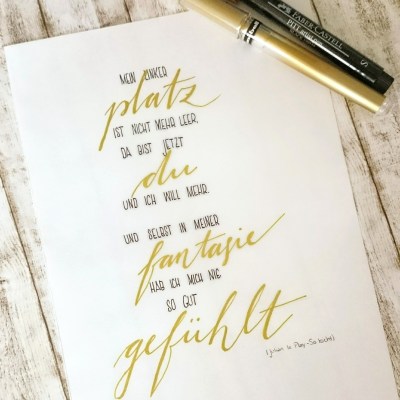 MEIN LINKER
platz
IST NICHT MEHR LEER,
DA BIST JETZT
du
UND ICH WILL MEHR.
UND SELBST IN MEINER
fantasie
HAB ICH MICH NIE
SO GUT
gefühlt
FABER CASTELL
PITT
S